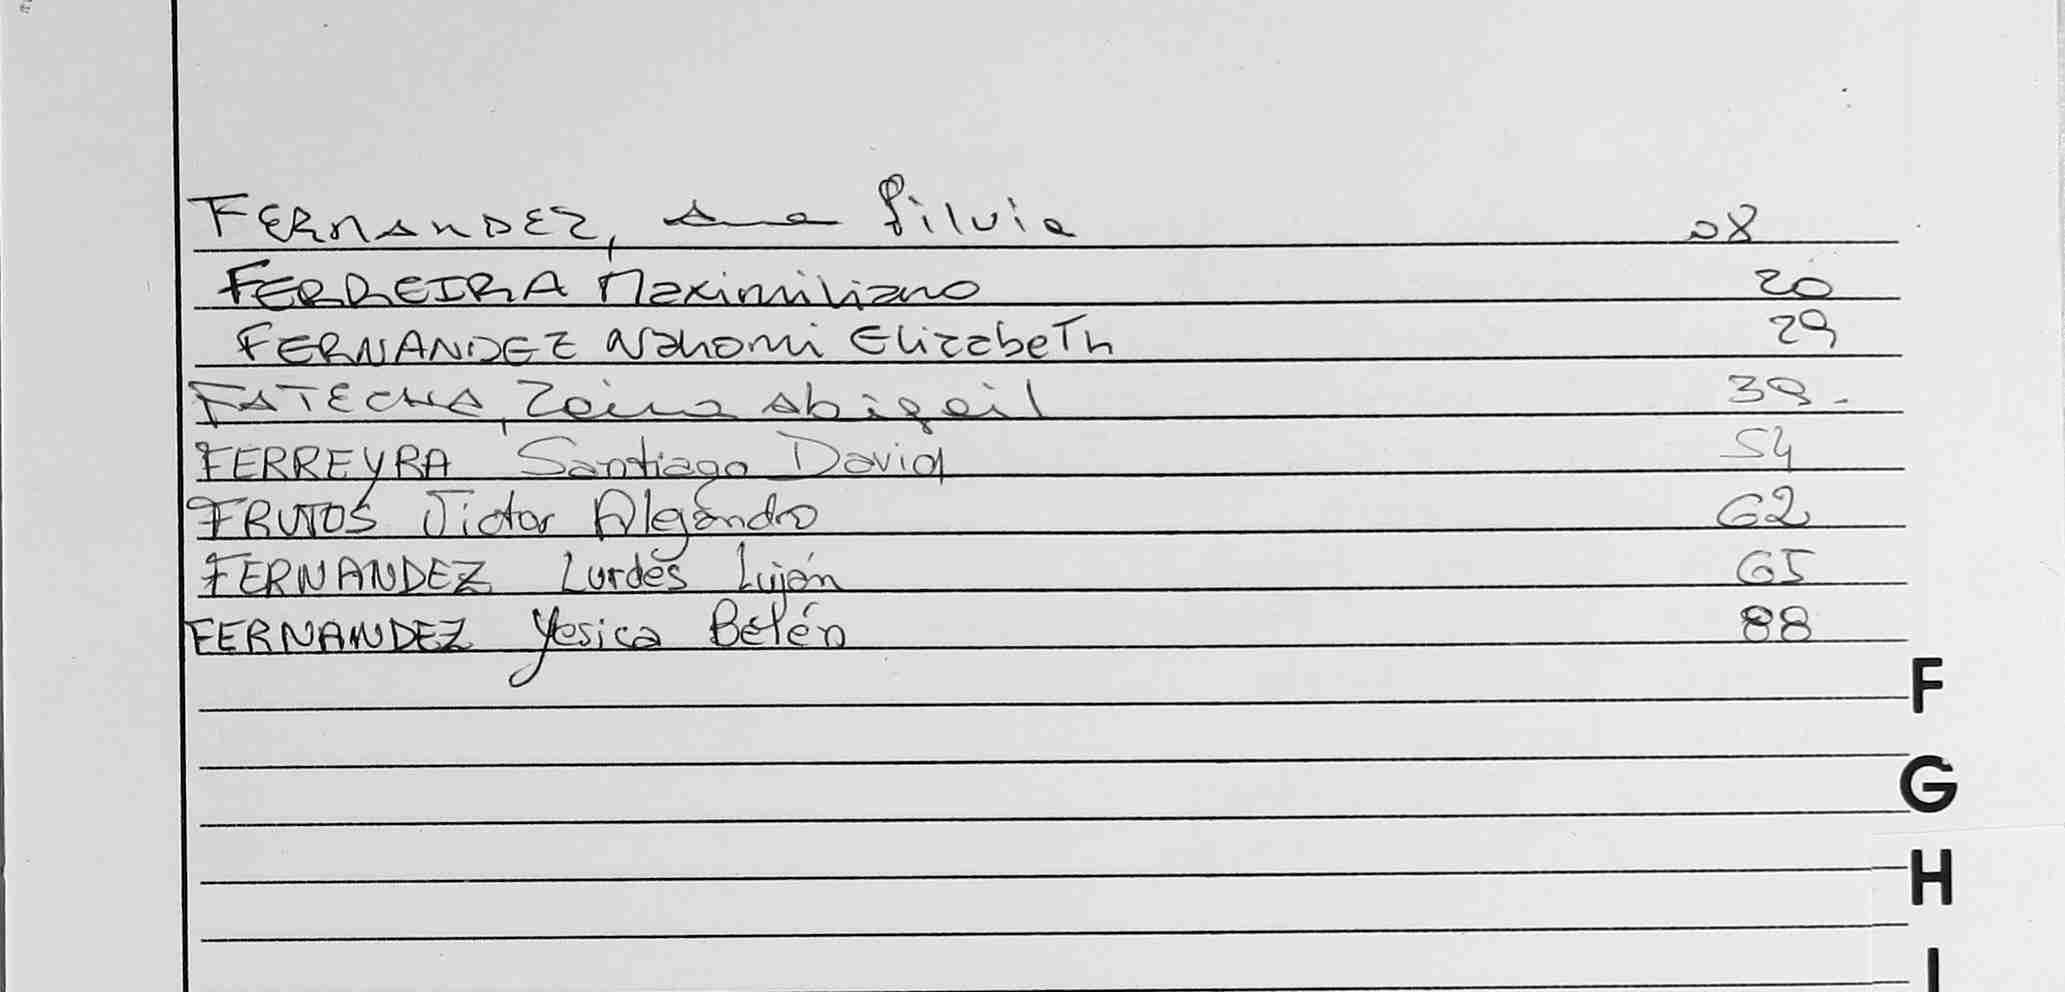 FERNANDEZ, Ana Silvia 08
FERREIRA Maximiliano 20
FERNANDEZ Nahomi Elizabeth 29
FATECHA, Zaira Abigail 39.
FERREYRA Santiago David 54
FRUTOS Victor Alejandro 62
FERNANDEZ Lurdes Luján 65
FERNANDEZ Yesica Belén 88
F
G
H
I